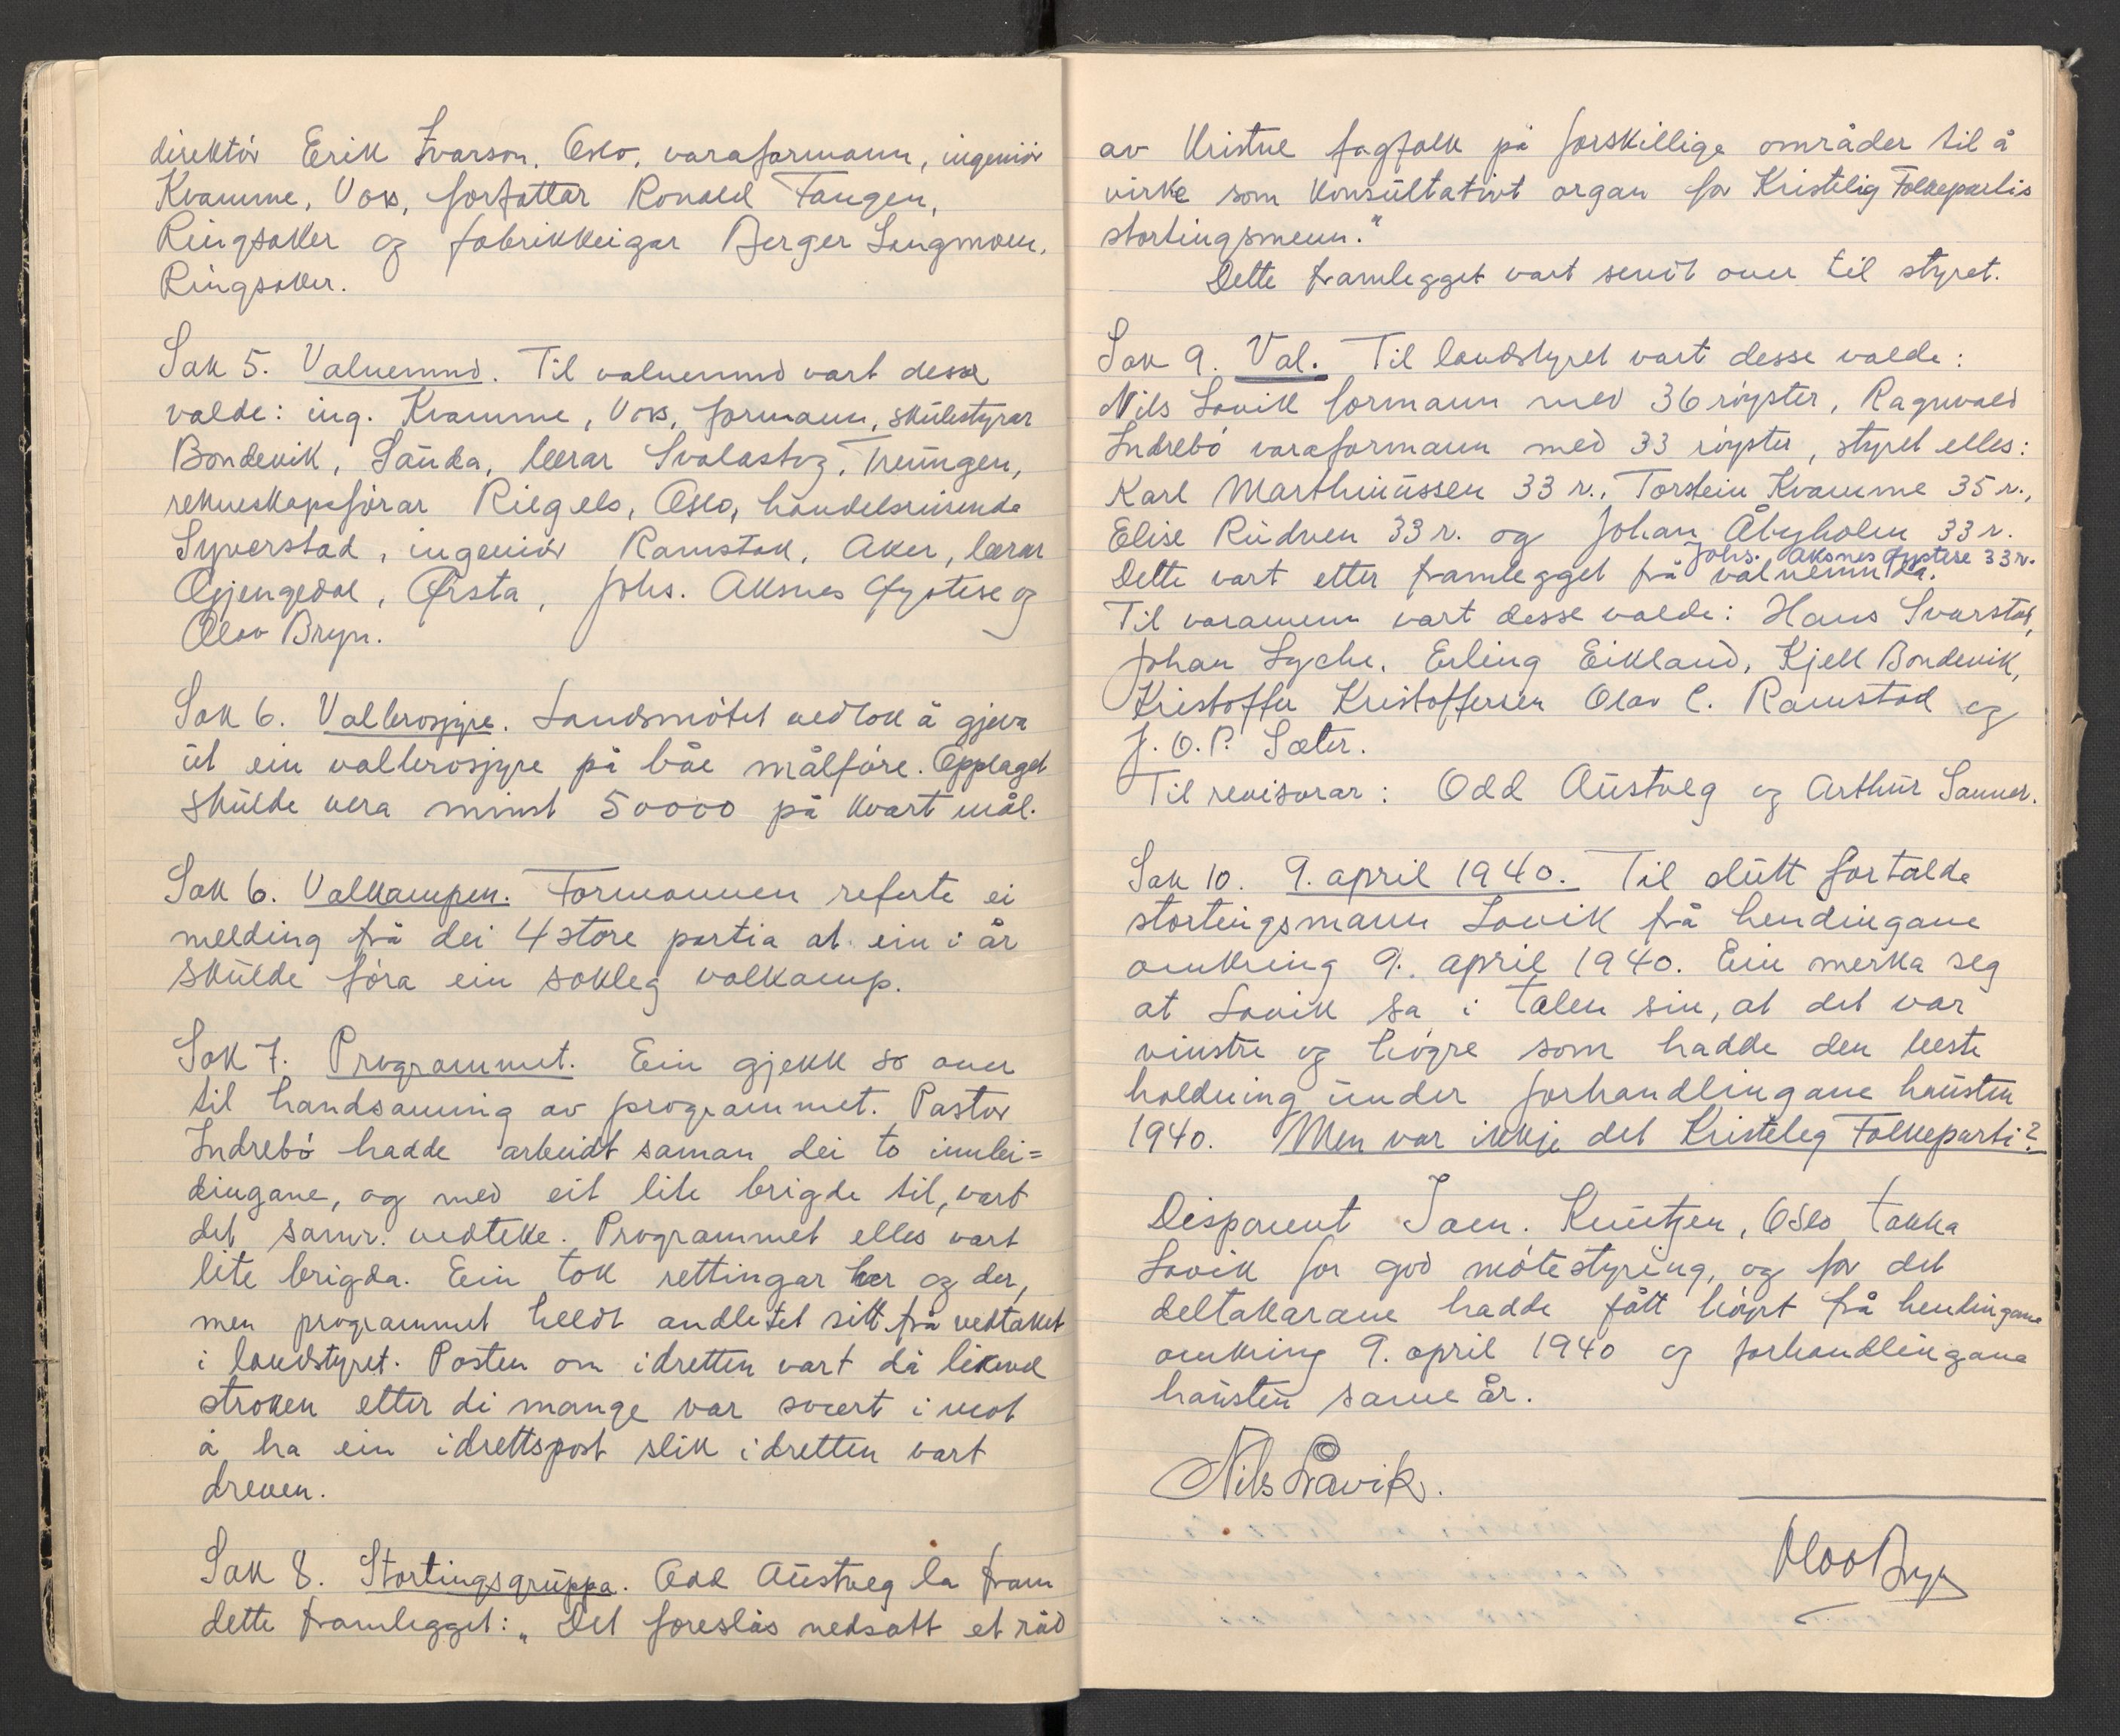 direktór Erik Ivarson, Oslo, varaformann, ingeniór
Kvamme, Voss, forfattar Ronald Fangen,
Ringsaker og fabrikkeigar Berger Langmoen,
Ringsaker.
Sak 5. Valnemnd. Til valnemnd vart desse
valde: ing. Kvamme, Voss, formann, skulestyrar
Bondevik, Sauda, lærar Svalastog, Treungen,
rekneskapsfórar Riegels, Oslo, handelsreisende
Syverstad, ingeniór Ramstad, Aker, lærar
Gjengedal, Ørsta, Johs. Aksnes Øystese og
Olav Bryn.
Sak 6. Valbrosjyre. Landsmótet vedtok å gjeva
ut ein valbrosjyre på båe målfóre. Opplaget
skulde vera minst 50000 på kvart mål.
Sak 6. Valkampen. Formannen referte ei
melding frå dei 4 store partia at ein i år
skulde fóra ein sakleg valkamp.
Sak 7. Programmet. Ein gjekk so over
til handsaming av programmet. Pastor
Indrebó hadde arbeidt saman dei to innlei=
dingane, og med eit lite brigde til, vart
det samr. vedteke. Programmet elles vart
lite brigda. Ein tok rettingar her og der,
men programmet heldt andletet sitt frå vedtaket
i landstyret. Posten om idretten vart då likevel
stroken etter di mange var svært i mot
å ha ein idrettspost slik idretten vart
dreven.
Sak 8. Stortingsgruppa. Odd Austveg la fram
dette framlegget: „Det foreslås nedsatt et råd
av Kristne fagfolk på forskillige områder til å
virke som konsultativt organ for Kristelig Folkepartis
stortingsmenn."
Dette framlegget vart sendt over til styret.
Sak 9. Val. Til landstyret vart desse valde:
Nils Lavik formann med 36 róyster, Ragnvald
Indrebó varaformann med 33 róyster, styret elles:
Karl Marthinussen 33 r., Torstein Kvamme 35 r.,
Elise Rudven 33 r. og Johan Åbyholm 33 r.
Johs. Aksnes Øystese 33 r.
Dette vart etter framlegget frå valnemnda.
Til varamenn vart desse valde: Hans Svarstad,
Johan Lyche, Erling Eikland, Kjell Bondevik,
Kristoffer Kristoffersen Olav C. Ramstad og
J. O. P. Sæter.
Til revisorar: Odd Austveg og Arthur Sanner.
Sak 10. 9. april 1940. Til slutt fortalde
stortingsmann Lavik frå hendingane
omkring 9. april 1940. Ein merka seg
at Lavik sa i talen sin, at det var
vinstre og hógre som hadde den beste
haldning under forhandlingane hausten
1940. Men var ikkje det Kristeleg Folkeparti?
Disponent Kuntzen, Oslo takka
Lavik for god mótestyring, og for det
deltakarane hadde fått hóyrt frå hendingane
omkring 9. april 1940 og forhandlingane
hausten same år.
Nils Lavik.
Olav Bryn